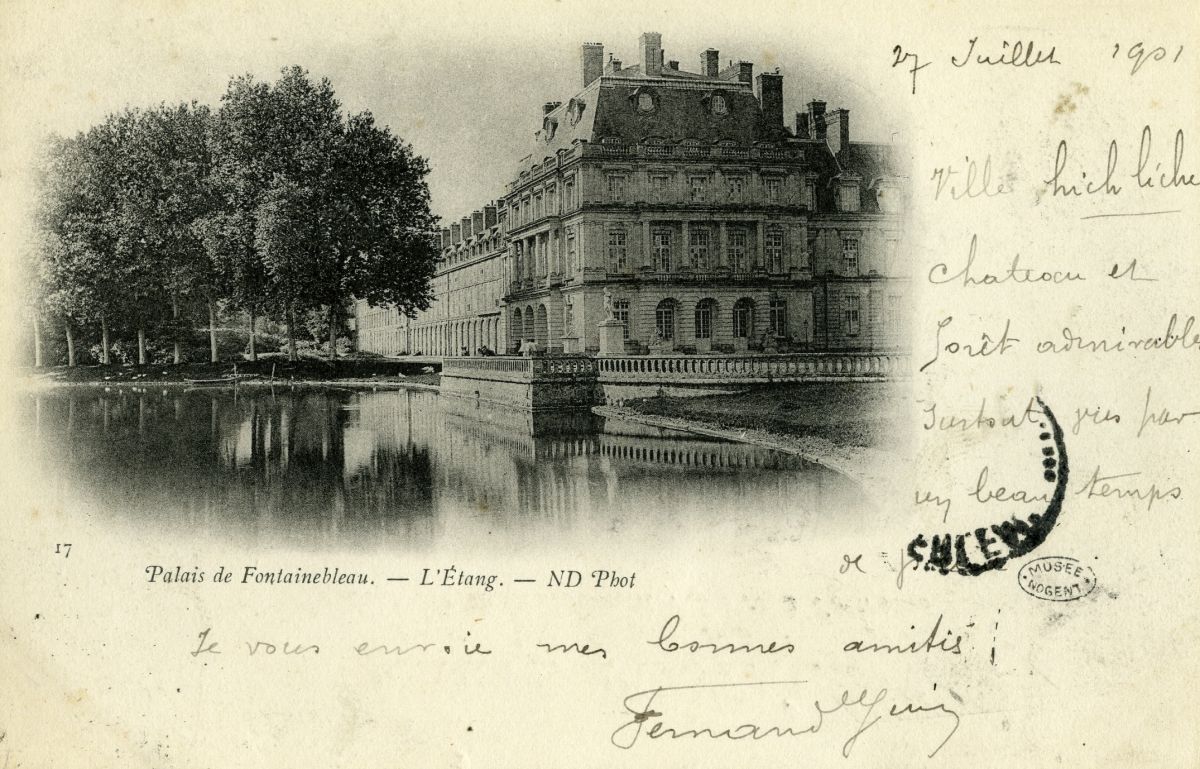 27 Juillet 1901
Ville hich liche
chateau et
forêt admirable
surtout vus par
un beau temps
de
17
Palais de Fontainebleau. — L'Étang. — ND Phot
MUSÉE
NOGENT
Je vous envoie mes bonnes amitis
Fernand